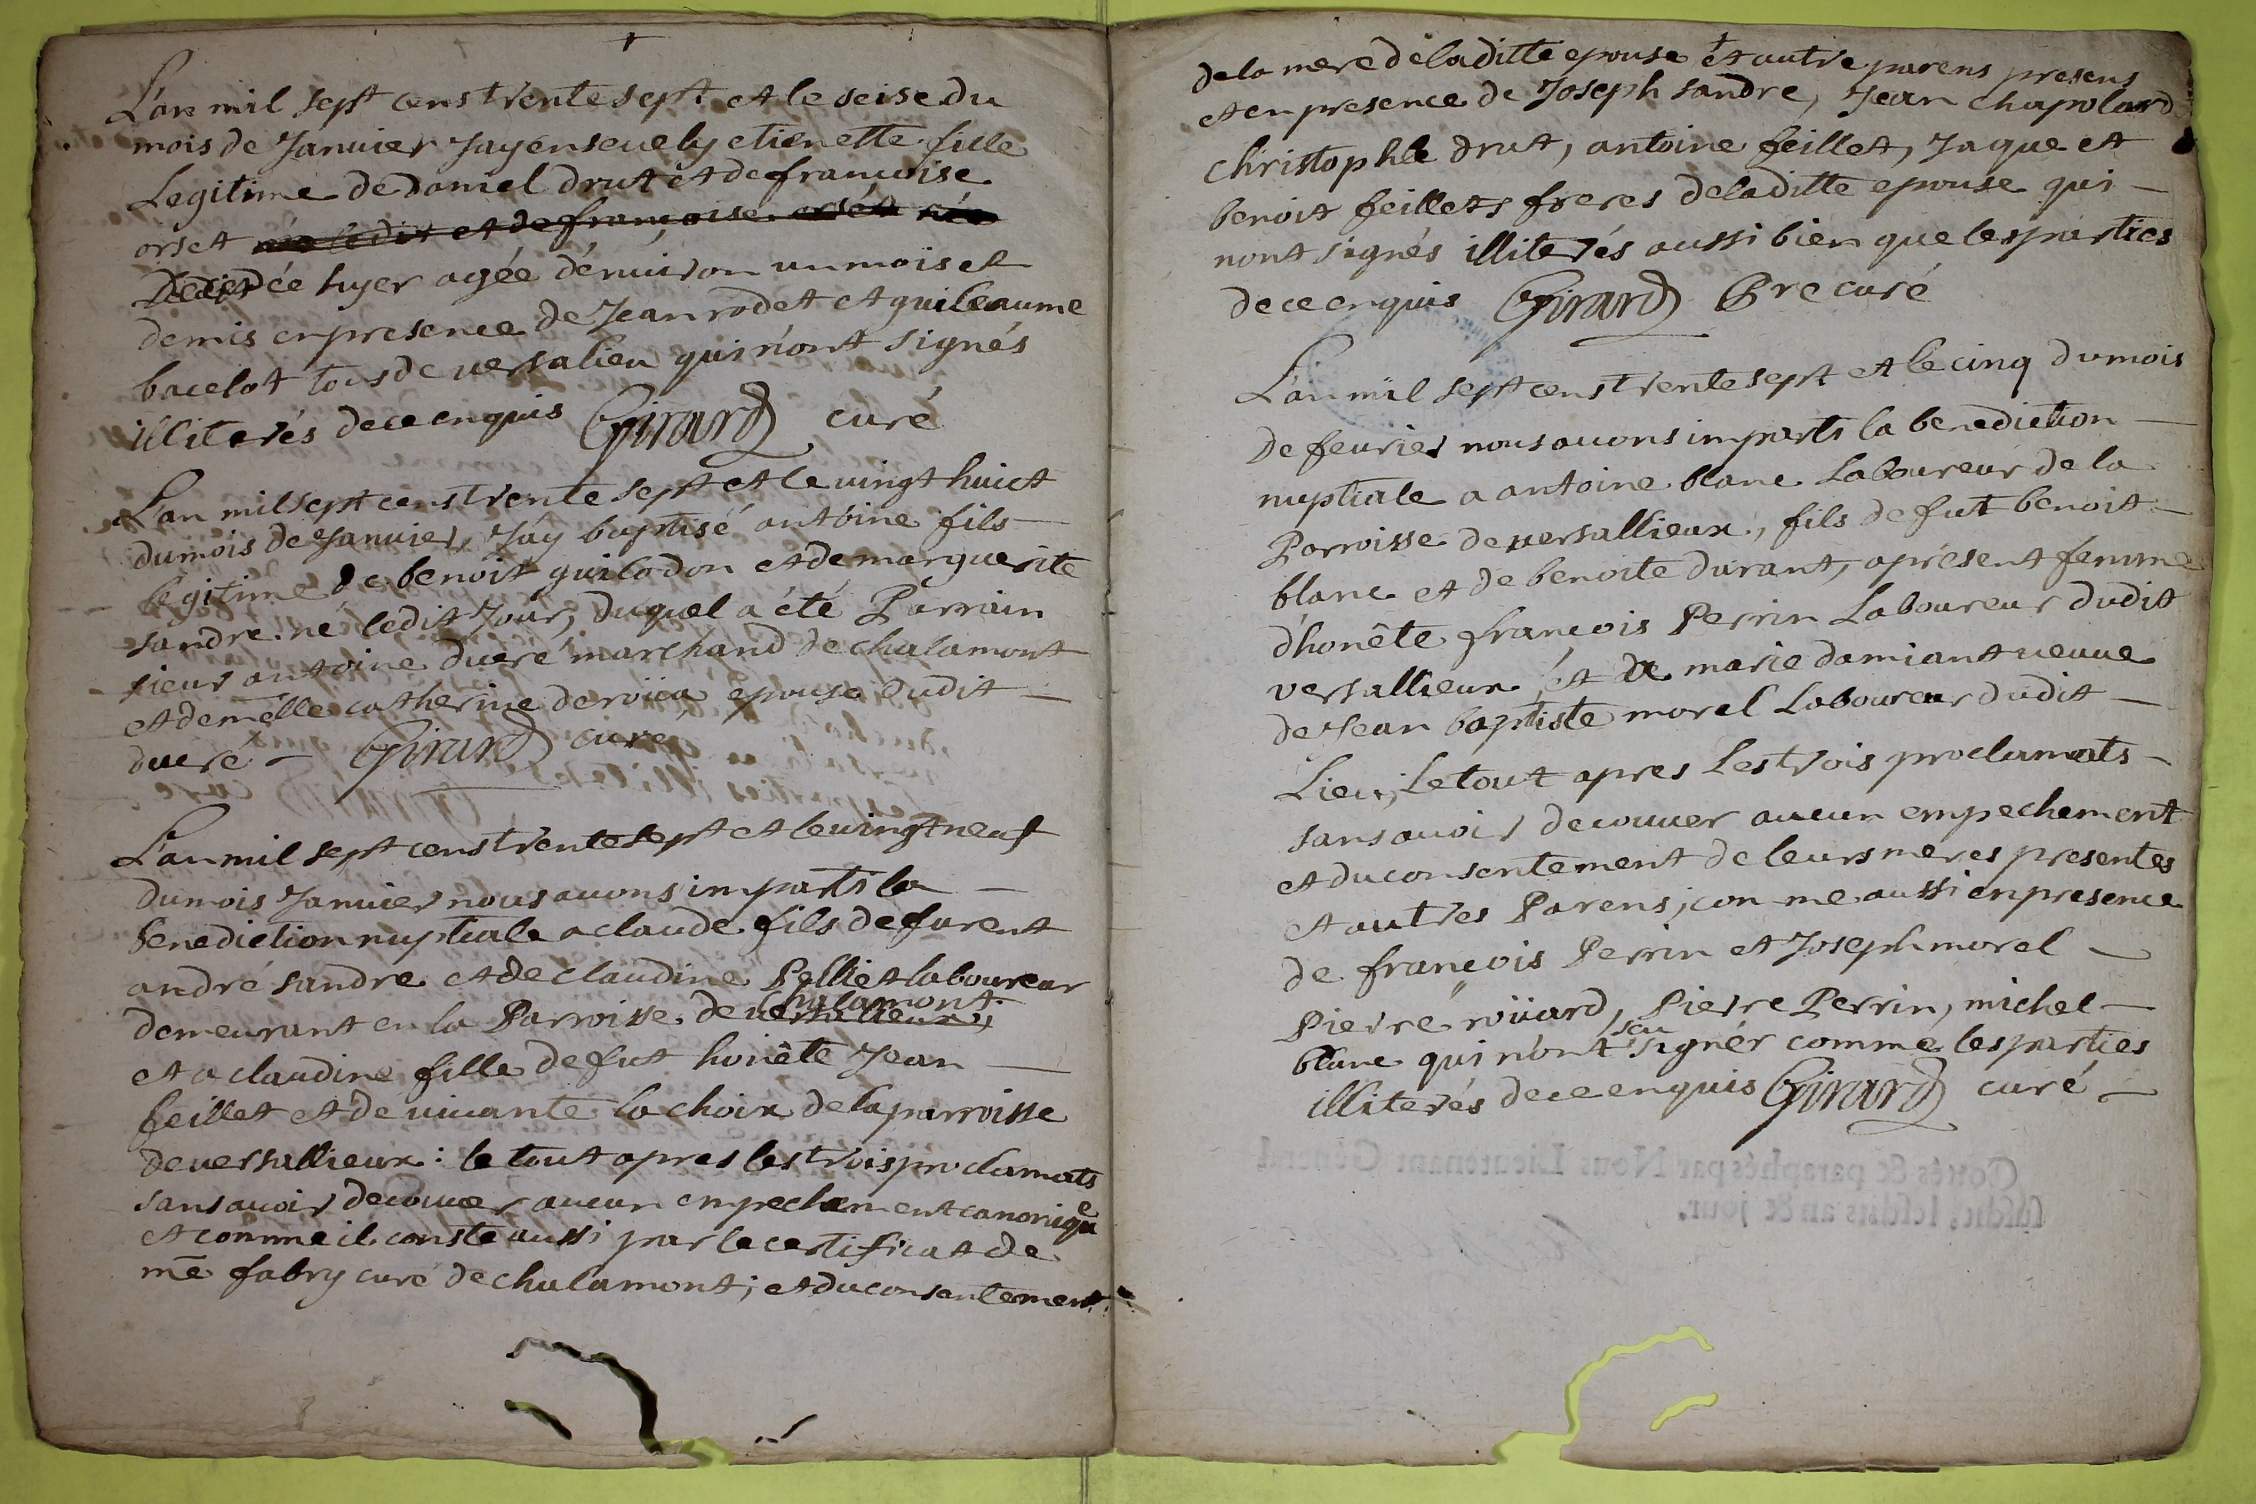 L'an mil sept cens trente sept et le seise du
mois de Janvier Jay ensevely etienette fille
Legitime de daniel drut et de francoise
orset
Decedée hyer agée d'environ un mois et
demis en presence de Jean rodet et guileaume
bacelot tous de versalieu qui n'ont signés
illiterés de ce enquis Girard curé
L'an mil sept cens trente sept et le vingt huict
du mois de Janvier, J'ay baptisé antoine fils
legitime de benoit guilodon et de marguerite
sandre né ledit Jour, duquel a été Parrain
sieur antoine dueré marchand de chalamont
et demelle catherine de roüa epouse dudit
dueré - Girard curé
L'an mil sept cens trente sept et le vingt neuf
du mois Janvier nous avons imparti la
benediction nuptiale a claude fils de furent
andré sandre et de claudine Pelliet laboureur
demeurant en la Parroisse de chalamont
et a claudine fille de fut honête Jean
feillet et de vivante la choix de la parroisse
de versallieux : le tout apres les trois proclamats
sans avoir decouver aucun empechement canonique
et comme il conste aussi par le certificat de
me fabry curé de chalamont ; et du consentement
de la mere de laditte epouse et autre parens presens
et en presence de Joseph sandre, Jean chapolard
christophle drut, antoine feillet, Jaque et
benoit feillets freres de laditte epouse qui -
nont signés illiterés aussi bien que les parties
de ce enquis Girard Pre curé
L'an mil sept cens trente sept et le cinq du mois
de fevrier nous avons imparti la benediction
nuptiale a antoine blanc Laboureur de la
Parroisse de versallieux, fils de fut benoit
blanc et de benoite durant, apresent femme
d'honête françois Perrin Laboureur dudit
versallieux, et de marie damiant veuve
de Jean baptiste morel Laboureur dudit
Lieu, Le tout apres Les trois proclamats
sans avoir decouver aucun empechement
et du consentement de leurs meres presentes
et autres Parens, comme aussi en presence
de françois Perrin et Joseph morel
Pierre roüard, Pierre Perrin, michel
blanc qui n'ont sçu signer comme les parties
illiterés de ce enquis Girard curé
Cottés & paraphés par Nous Lieutenant General
susdit, lesdits an & jour.